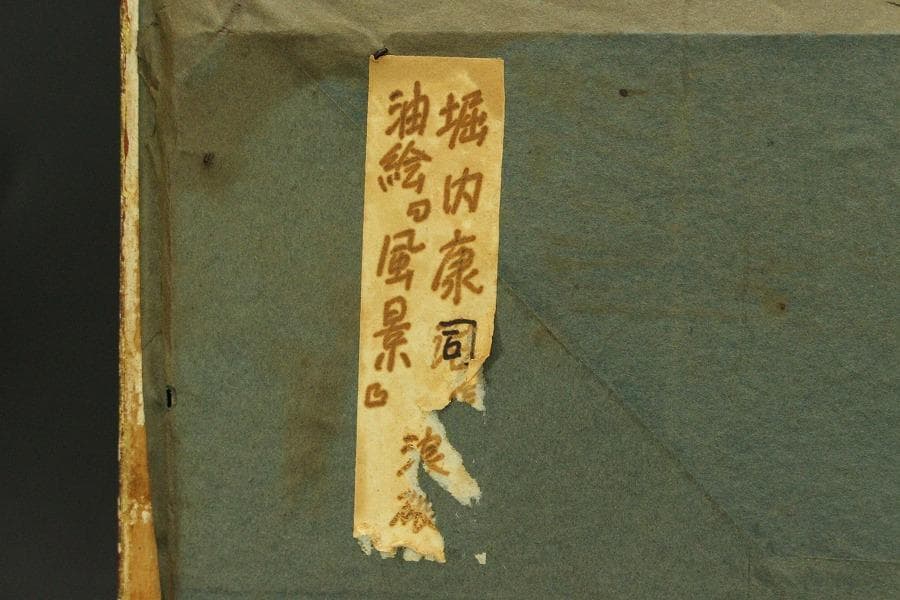 堀内康司
油絵『風景』